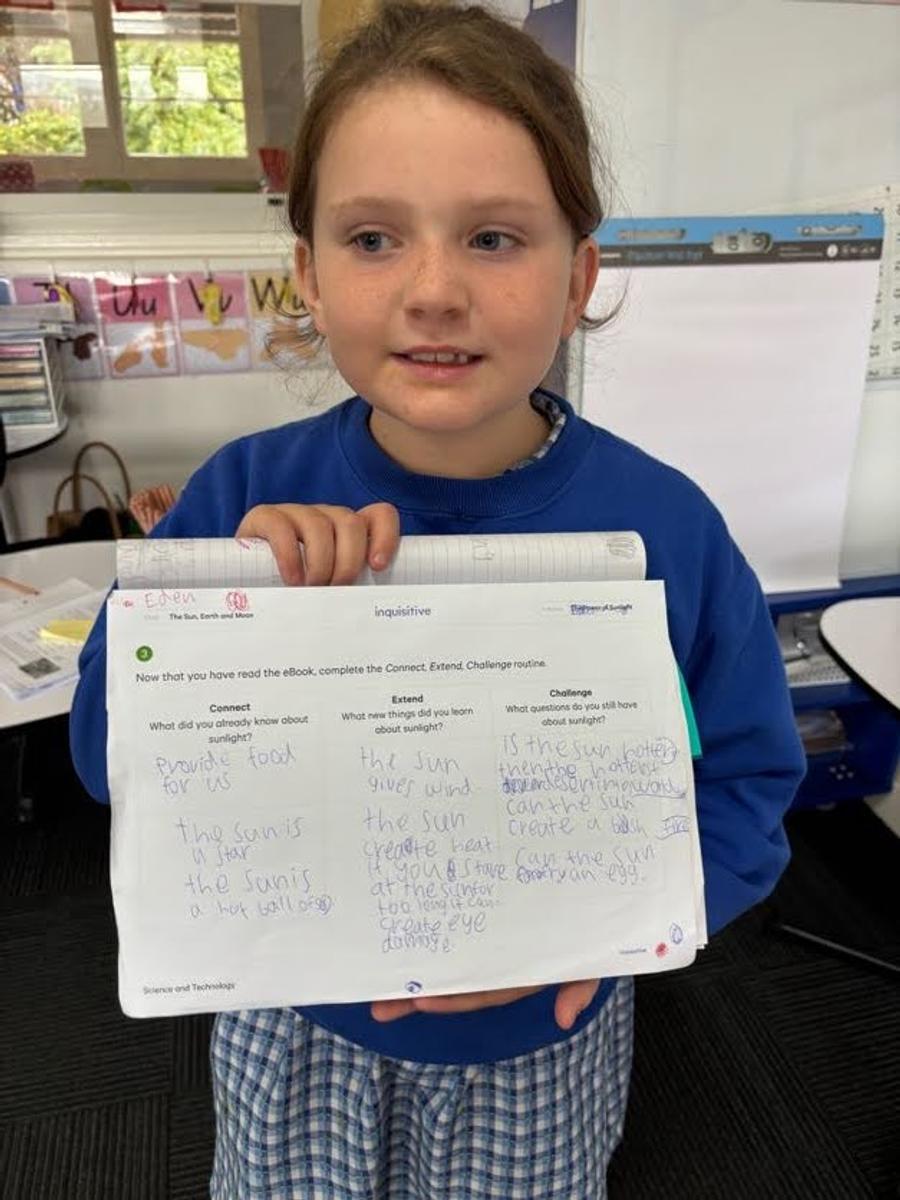 Uu
Vv
Ww
Eden
The Sun, Earth and Moon
inquisitive
The Power of Sunlight
3
Now that you have read the eBook, complete the Connect, Extend, Challenge routine.
Connect
What did you already know about
sunlight?
Provide food
for us
the sun is
a star
the sun is
a hot ball of
Extend
What new things did you learn
about sunlight?
the sun
gives wind
the sun
create heat
If you stare
at the sun for
too long it can
create eye
damage.
Challenge
What questions do you still have
about sunlight?
is the sun hotter
then the hottest
desert in the world
can the sun
create a bush fire
Can the sun
fry an egg.
Science and Technology
inquisitive